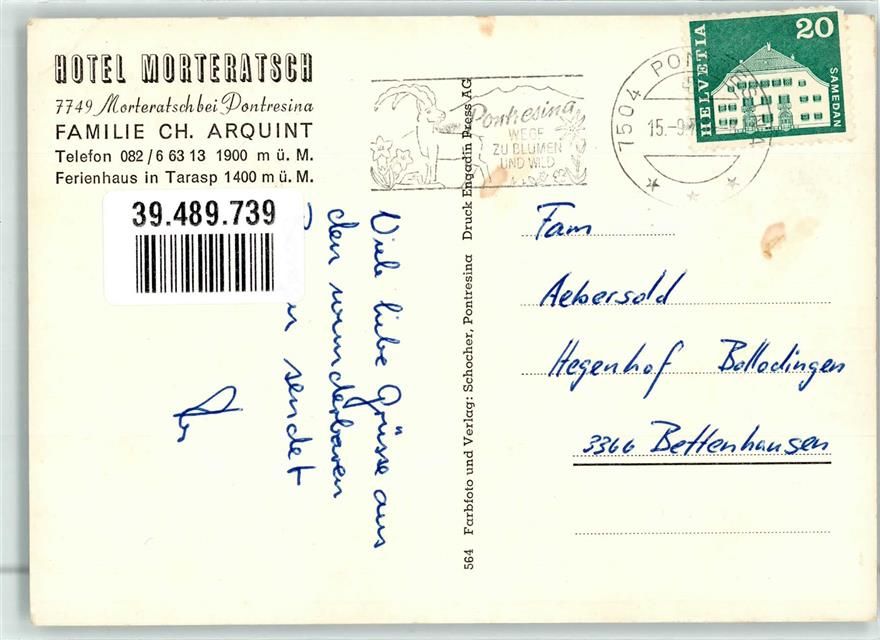 HOTEL MORTERATSCH
7749 Morteratsch bei Pontresina
FAMILIE CH. ARQUINT
Telefon 082/6 63 13 1900 m ü. M.
Ferienhaus in Tarasp 1400 m ü. M.
39.489.739
Viele liebe Grüsse aus
den wunderbaren
sendet
564 Farbfoto und Verlag: Schocher, Pontresina Druck Engadin Press AG
Pontresina
WEGE
ZU BLUMEN
UND WILD
7504 PONTRESINA
15.-9
HELVETIA
20
SAMEDAN
Fam
Aebersold
Hegenhof Bollodingen
3366 Bettenhausen